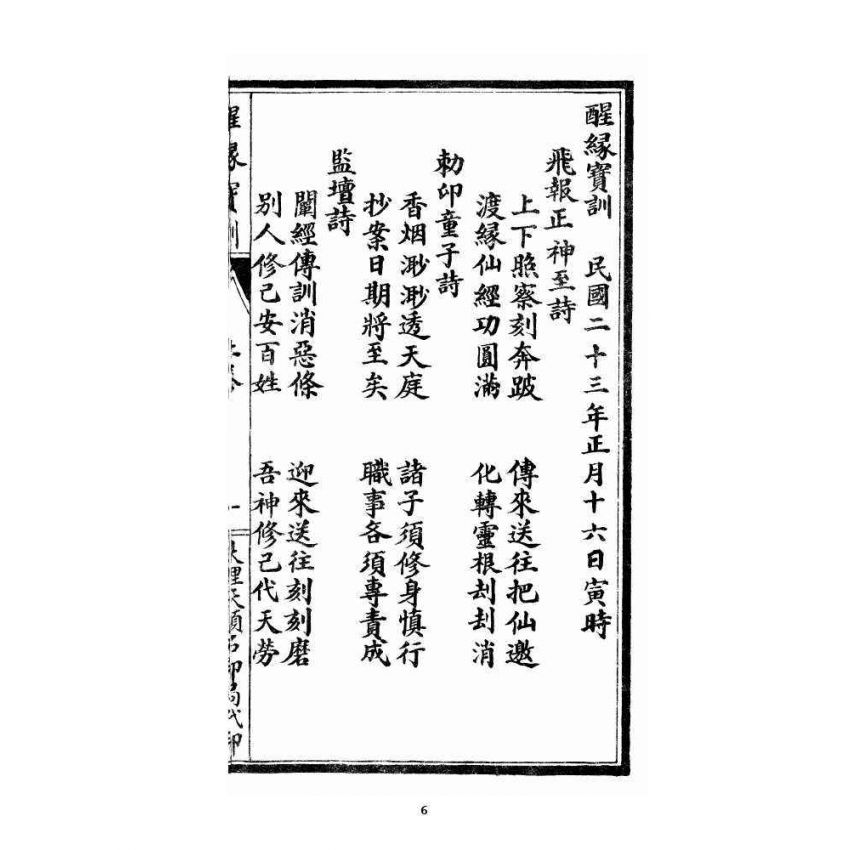 醒緣寳訓　民國二十三年正月十六日寅時
飛報正神至詩
上下照察刻奔跛　傳來送往把仙邀
渡緣仙經功圓滿　化轉靈根刦刦消
勅印童子詩
香烟渺渺透天庭　諸子須修身慎行
抄案日期將至矣　職事各須專責成
監壇詩
闡經傳訓消惡條　迎來送往刻刻磨
別人修己安百姓　吾神修己代天勞
醒緣寳訓　上卷　一　大理天順石印局代印
6